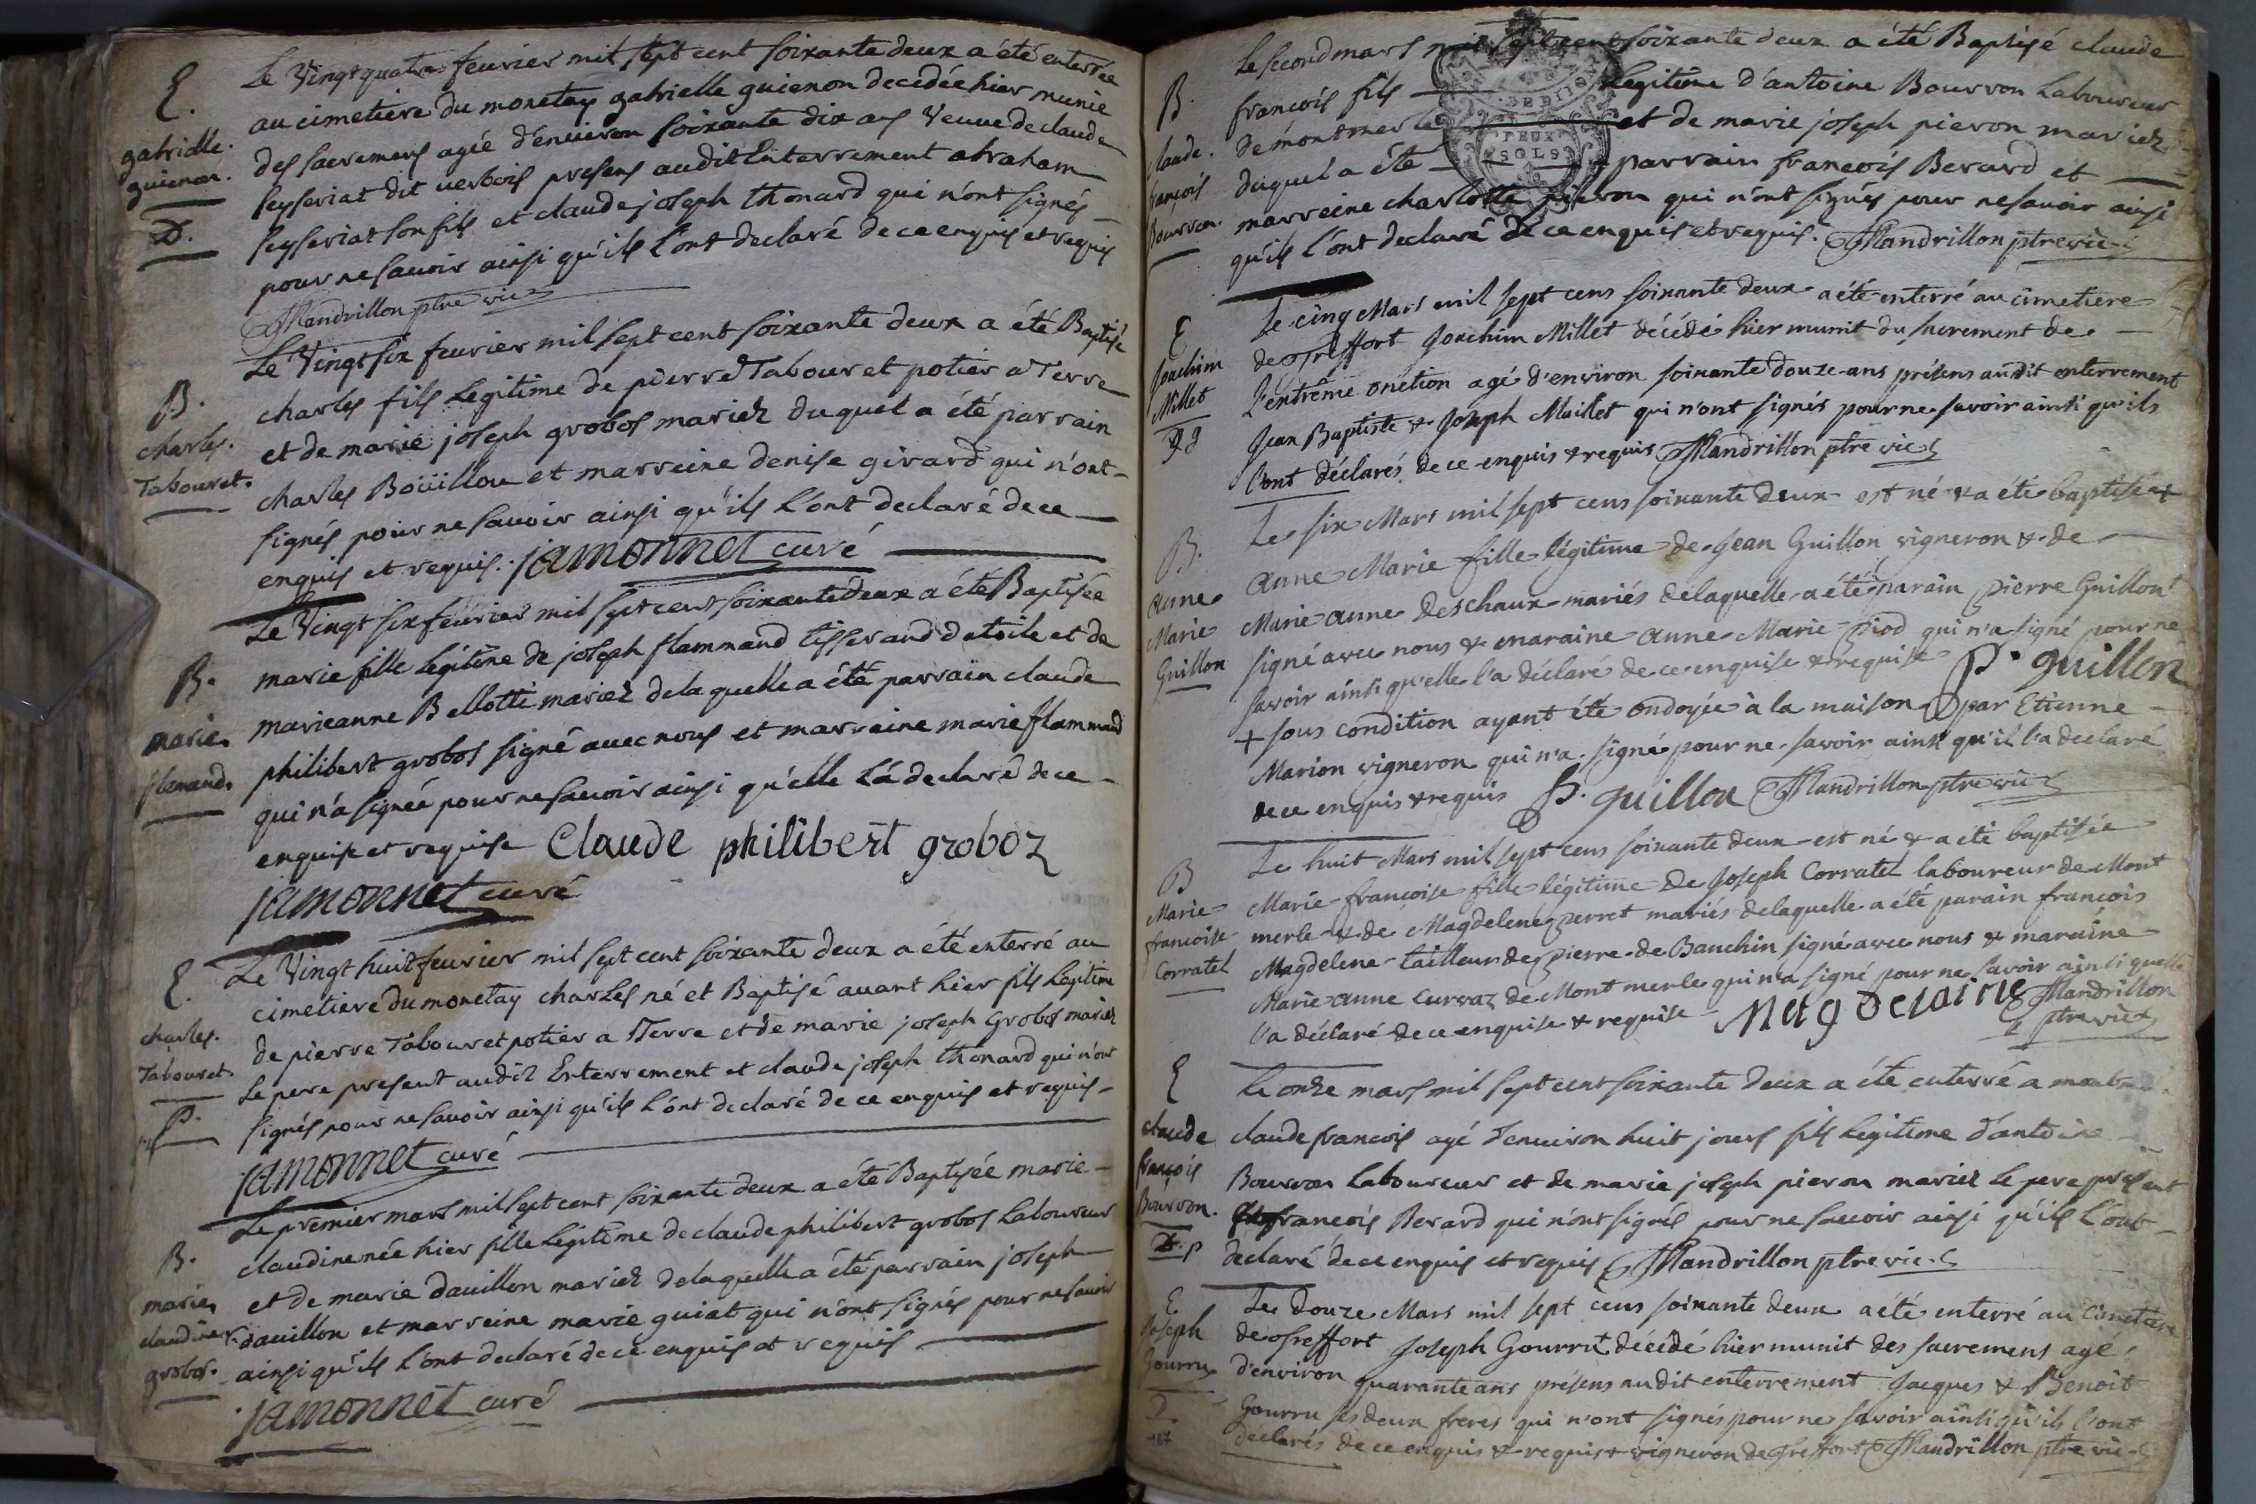 E.
gabrielle
guienon.
D.
Le Vingt quatre feurier mil sept cent soixante deux a été enterrée
au cimetiere du monetay gabrielle guienon decedée hier munie
des sacremens agée d'énuiron soixante dix ans Veuve de claude
seyseriat dit uerbois presens audit Enterrement abraham
seyseriat son fils et claude joseph thonard qui n'ont signés
pour ne sauoir ainsi qu'ils l'ont declaré de ce enquis et requis
Mandrillon ptre vic
B.
charles.
Tabouret.
Le Vingt six feurier mil sept cent soixante deux a été Baptisé
charles fils Legitime de pierre Tabouret potier a Terre
et de marie joseph grobos mariez duquel a été parrain
charles Boüillou et marreine denise girard qui n'ont
signés pour ne sauoir ainsi qu'ils l'ont declaré de ce
enquis et requis. jamonnet curé
B.
marie
flamand.
Le Vingt six féurier mil sept cent soixante deux a été Baptisée
marie fille Legitime de joseph flammand tisserand datoile et de
marieanne Bellotti mariez de la quelle a été parrain claude
philibert grobos signé auec nous et marraine marie flammand
qui n'a signée pour ne sauoir ainsi qu'elle l'a declaré de ce
enquise et requise Claude philibert groboz
jamonnet curé
E.
charles.
Tabouret.
D.
Le Vingt huit feurier mil sept cent soixante deux a été enterré au
cimetiere du monetay charles né et Baptisé auant hier fils Legitime
de pierre Tabouret potier a Terre et de marie joseph Grobos mariez
Le pere present audit Enterrement et claude joseph thonard qui n'ont
signés pour ne sauoir ainsi qu'ils l'ont declaré de ce enquis et requis
jamonnet curé
B.
marie
claudine
grobos.
Le premier mars mil sept cent soixante deux a été Baptisée marie
claudine née hier fille Legitime de claude philibert grobos Laboureur
et de marie dauillon mariez de laquelle a été parrain joseph
dauillon et marreine marie guiat qui n'ont signés pour ne sauoir
ainsi qu'ils l'ont declaré de ce enquis et requis
jamonnet curé
B.
claude.
françois
Bourron.
Le second mars mil sept cent soixante deux a été Baptisé claude
francois fils Legitime d'antoine Bourron Laboureur
de montmerle et de marie joseph pieron mariez
duquel a été parrain francois Berard et
marreine charlotte pieron qui n'ont signés pour ne sauoir ainsi
qu'ils l'ont declaré de ce enquis et requis. Mandrillon ptre vic
DEUX
SOLS
E
Joachim
Millet
Le cinq Mars mil sept cens soixante deux a été enterré au cimetiere
de Treffort Joachim Millet décédé hier munit du sacrement de
l'extrême onction agé d'environ soixante douze ans présens au dit enterrement
Jean Baptiste & Joseph Maillet qui n'ont signés pour ne savoir ainsi qu'ils
l'ont déclarés de ce enquis & requis Mandrillon ptre vic
B.
Anne
Marie
Guillon
Le six Mars mil sept cens soixante deux est né & a été baptisée +
Anne Marie fille légitime de Jean Guillon vigneron & de
Marie anne Deschaux mariés de laquelle a été parain pierre Guillon
signé avec nous & maraine Anne Marie piod qui n'a signé pour ne
savoir ainsi qu'elle l'a déclaré de ce enquise & requise P. guillon
+ sous condition ayant été ondoyée à la maison par Etienne
Marion vigneron qui n'a signé pour ne savoir ainsi qu'il l'a declaré
de ce enquis & requis P. guillon Mandrillon ptre vic
B
Marie
francoise
Corratel
Le huit Mars mil sept cens soixante deux est né & a été baptisée
Marie francoise fille légitime de Joseph Corratel laboureur de Mont
merle & de Magdelene perret mariés de laquelle a été parain francois
Magdelene tailleur de pierre de Bauchin signé avec nous & maraine
Marie anne Curvaz de Mont merle qui n'a signé pour ne savoir ainsi quelle
l'a déclaré de ce enquise & requise Magdelaine Mandrillon
ptre vic
E
claude
françois
Bourron.
D. p
Le onze mars mil sept cent soixante deux a été enterré a
claude francois agé d'enuiron huit jours fils Legitime d'antoine
Bourron Laboureur et de marie joseph pieron mariez le pere present
francois Berard qui n'ont signés pour ne sauoir ainsi qu'ils l'ont
declaré de ce enquis et requis Mandrillon ptre vic
E
Joseph
Gourru
D
Le Douze Mars mil sept cens soixante deux a été enterré au Cimetiere
de Treffort Joseph Gourru décédé hier munit des sacremens agé
d'environ quarante ans présens au dit enterrement Jacques & Benoit
Gourru ses deux freres qui n'ont signés pour ne savoir ainsi qu'ils l'ont
declarés de ce enquis & requis & vigneron de Treffort Mandrillon ptre vic